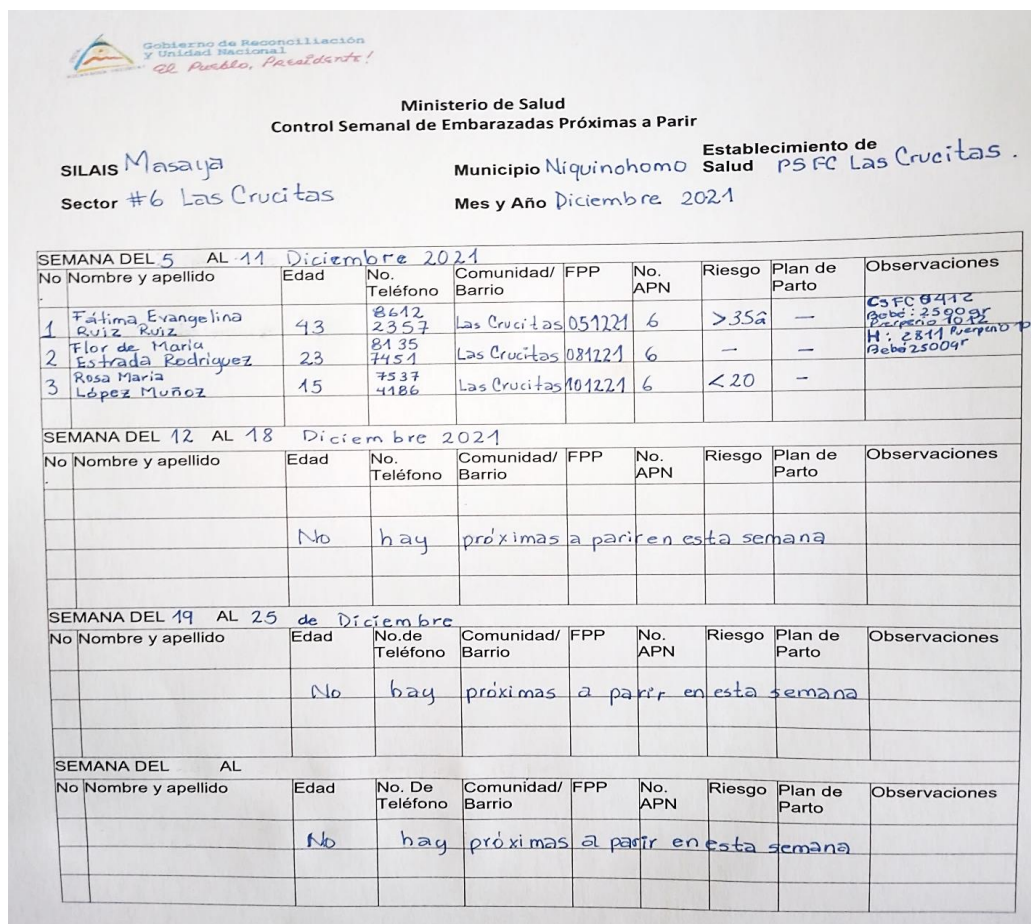 Gobierno de Reconciliación
y Unidad Nacional
El Pueblo, Presidente!
Ministerio de Salud
Control Semanal de Embarazadas Próximas a Parir
SILAIS Masaya Municipio Niquinohomo Establecimiento de Salud PSFC Las Crucitas.
Sector #6 Las Crucitas Mes y Año Diciembre 2021
SEMANA DEL 5 AL 11 Diciembre 2021
No. Nombre y apellido Edad No. Teléfono Comunidad/ Barrio FPP No. APN Riesgo Plan de Parto Observaciones
1 Fátima Evangelina Ruiz Ruiz 43 8612 2357 Las Crucitas 051221 6 >35a — Bebé: 2500gr
2 Flor de María Estrada Rodriguez 23 8135 7451 Las Crucitas 081221 6 — — H: 2811 Puerperio Bebé 2500gr
3 Rosa María López Muñoz 15 7537 4186 Las Crucitas 101221 6 <20 —
SEMANA DEL 12 AL 18 Diciembre 2021
No. Nombre y apellido Edad No. Teléfono Comunidad/ Barrio FPP No. APN Riesgo Plan de Parto Observaciones
No hay próximas a parir en esta semana
SEMANA DEL 19 AL 25 de Diciembre
No Nombre y apellido Edad No.de Teléfono Comunidad/ Barrio FPP No. APN Riesgo Plan de Parto Observaciones
No hay próximas a parir en esta semana
SEMANA DEL AL
No Nombre y apellido Edad No. De Teléfono Comunidad/ Barrio FPP No. APN Riesgo Plan de Parto Observaciones
No hay próximas a parir en esta semana